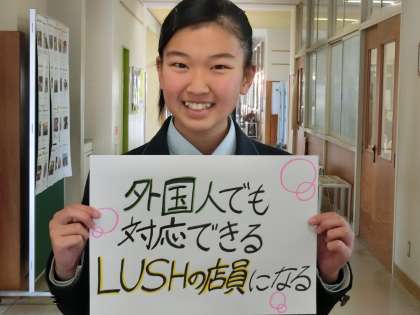 外国人でも
対応できる
LUSHの店員になる